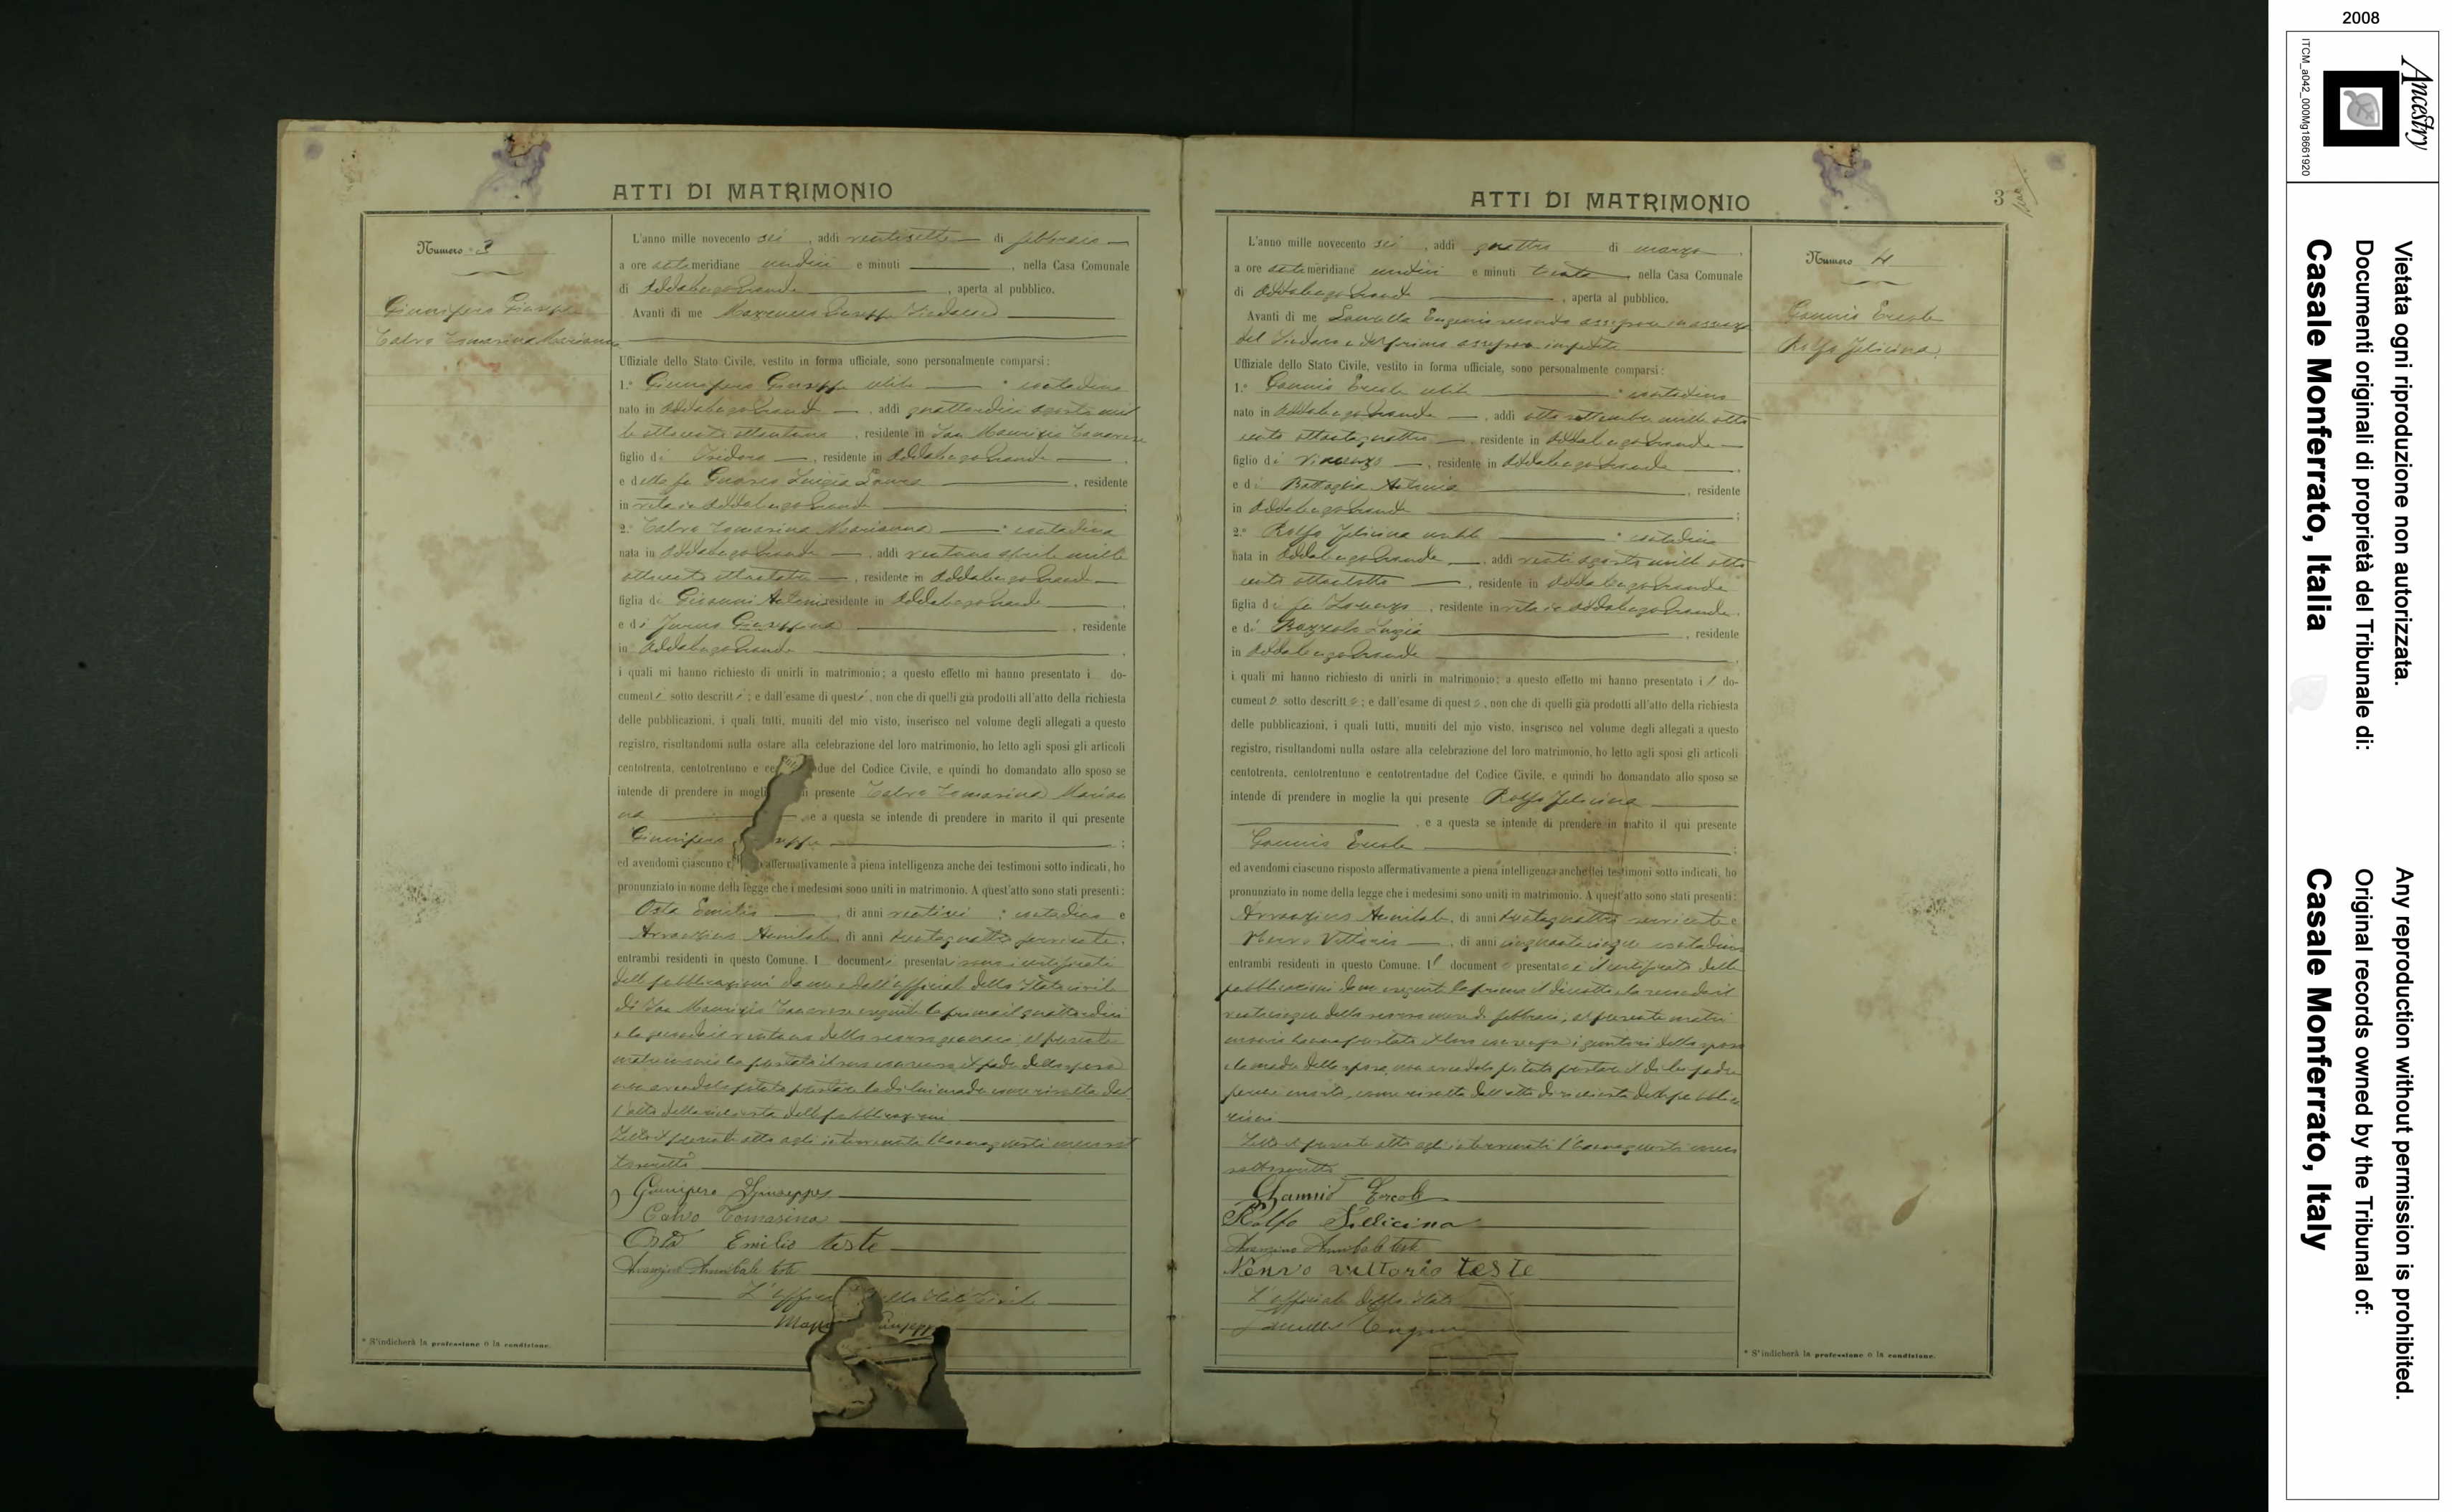 ATTI DI MATRIMONIO
Numero 3
Giunipero Giuseppe
Calvo Tomasina Marianna
L'anno mille novecento sei, addì ventisette di febbraio
a ore antimeridiane undici e minuti, nella Casa Comunale
di Odalengo Grande, aperta al pubblico.
Avanti di me Giuseppe Sindaco
Uffiziale dello Stato Civile, vestito in forma ufficiale, sono personalmente comparsi:
1.° Giunipero Giuseppe celibe contadino
nato in Odalengo Grande, addì quattordici agosto mil
le ottocento ottantuno, residente in San Maurizio Canavese
figlio di Isidoro, residente in Odalengo Grande
e della fu Luigia Laura, residente
in vita in Odalengo Grande;
2.° Calvo Tomasina Marianna contadina
nata in Odalengo Grande, addì ventuno aprile mille
ottocento, residente in Odalengo Grande
figlia di Giovanni Antonio residente in Odalengo Grande
e di Giuseppina, residente
in Odalengo Grande,
i quali mi hanno richiesto di unirli in matrimonio; a questo effetto mi hanno presentato i do-
cumenti sotto descritti; e dall'esame di questi, non che di quelli già prodotti all'atto della richiesta
delle pubblicazioni, i quali tutti, muniti del mio visto, inserisco nel volume degli allegati a questo
registro, risultandomi nulla ostare alla celebrazione del loro matrimonio, ho letto agli sposi gli articoli
centotrenta, centotrentuno e ce due del Codice Civile, e quindi ho domandato allo sposo se
intende di prendere in mogli i presente Calvo Tomasina Marian
na, e a questa se intende di prendere in marito il qui presente
Giunipero eppe;
ed avendomi ciascuno r affermativamente a piena intelligenza anche dei testimoni sotto indicati, ho
pronunziato in nome della legge che i medesimi sono uniti in matrimonio. A quest'atto sono stati presenti:
Osta Emilio, di anni ventisei contadino e
Annibale, di anni trentaquattro serviente,
entrambi residenti in questo Comune. I documenti presentati sono i certificati
delle pubblicazioni da me e dall'ufficiale dello Stato civile
di San Maurizio Canavese eseguite la prima il quattordici
e la seconda il ventuno dello scorso gennaio; al presente
matrimonio ha prestato il suo consenso il padre della sposa
non avendolo potuto prestare la di lui madre come risulta dal
l'atto della richiesta delle pubblicazioni
Letto il presente atto agli intervenuti l'hanno questi meco sot
toscritto
Giunipero Giuseppe
Calvo Tomasina
Osta Emilio teste
Annibale teste
L'uffici dello Stato Civile
Giuseppe
* S'indicherà la professione o la condizione.
ATTI DI MATRIMONIO
3
Numero 4
Gonnio Ercole
Rolfo Felicina
L'anno mille novecento sei, addì quattro di marzo,
a ore antimeridiane undici e minuti trenta, nella Casa Comunale
di Odalengo Grande, aperta al pubblico.
Avanti di me Eugenio secondo assessore in assenza
del Sindaco e del primo assessore impedito
Uffiziale dello Stato Civile, vestito in forma ufficiale, sono personalmente comparsi:
1.° Ercole celibe contadino
nato in Odalengo Grande, addì otto settembre mille otto
cento ottantaquattro, residente in Odalengo Grande
figlio di Vincenzo, residente in Odalengo Grande
e di Battaglia Antonia, residente
in Odalengo Grande;
2.° Rolfo Felicina nubile contadina
nata in Odalengo Grande, addì venti agosto mille otto
cento ottantotto, residente in Odalengo Grande
figlia di fu Lorenzo, residente in vita in Odalengo Grande
e di Luigia, residente
in Odalengo Grande,
i quali mi hanno richiesto di unirli in matrimonio; a questo effetto mi hanno presentato il do-
cumento sotto descritto; e dall'esame di questo, non che di quelli già prodotti all'atto della richiesta
delle pubblicazioni, i quali tutti, muniti del mio visto, inserisco nel volume degli allegati a questo
registro, risultandomi nulla ostare alla celebrazione del loro matrimonio, ho letto agli sposi gli articoli
centotrenta, centotrentuno e centotrentadue del Codice Civile, e quindi ho domandato allo sposo se
intende di prendere in moglie la qui presente Rolfo Felicina
, e a questa se intende di prendere in marito il qui presente
Ercole;
ed avendomi ciascuno risposto affermativamente a piena intelligenza anche dei testimoni sotto indicati, ho
pronunziato in nome della legge che i medesimi sono uniti in matrimonio. A quest'atto sono stati presenti:
Annibale, di anni trentaquattro serviente e
Vittorio, di anni cinquantacinque contadino
entrambi residenti in questo Comune. Il documento presentato è il certificato delle
pubblicazioni da me eseguite la prima il diciotto e la seconda il
venticinque dello scorso mese di febbraio; al presente matri
monio hanno prestato il loro consenso i genitori dello sposo
e la madre della sposa, non avendolo potuto prestare il di lei padre
perché morto, come risulta dall'atto di richiesta delle pubblica
zioni
Letto il presente atto agli intervenuti l'hanno questi meco
sottoscritto
Ercole
Rolfo Fellicina
Annibale teste
vittorio teste
L'ufficiale dello Stato
Eugenio
* S'indicherà la professione o la condizione.
2008
Ancestry
ITCM_a042_000Mg18661920
Vietata ogni riproduzione non autorizzata.
Documenti originali di proprietà del Tribunale di:
Casale Monferrato, Italia
Any reproduction without permission is prohibited.
Original records owned by the Tribunal of:
Casale Monferrato, Italy